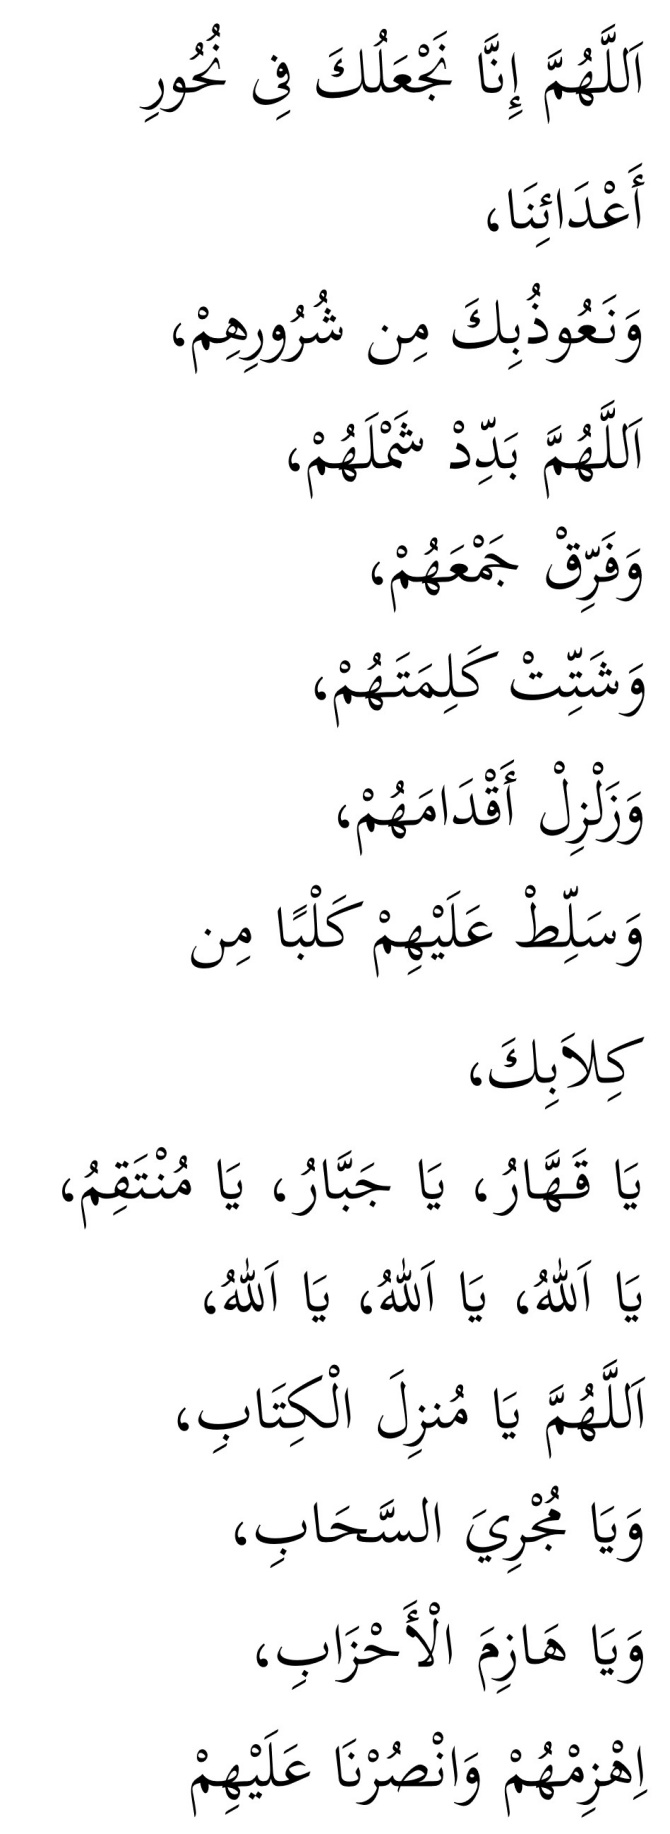 اَللَّهُمَّ إِنَّا نَجْعَلُكَ فِى نُحُورِ
أَعْدَائِنَا،
وَنَعُوذُبِكَ مِن شُرُورِهِمْ،
اَللَّهُمَّ بَدِّدْ شَمْلَهُمْ،
وَفَرِّقْ جَمْعَهُمْ،
وَشَتِّتْ كَلِمَتَهُمْ،
وَزَلْزِلْ أَقْدَامَهُمْ،
وَسَلِّطْ عَلَيْهِمْ كَلْبًا مِن
كِلاَبِكَ،
يَا قَهَّارُ، يَا جَبَّارُ، يَا مُنْتَقِمُ،
يَا اَللهُ، يَا اَللهُ، يَا اَللهُ،
اَللَّهُمَّ يَا مُنزِلَ الْكِتَابِ،
وَيَا مُجْرِيَ السَّحَابِ،
وَيَا هَازِمَ الْأَحْزَابِ،
اِهْزِمْهُمْ وَانْصُرْنَا عَلَيْهِمْ